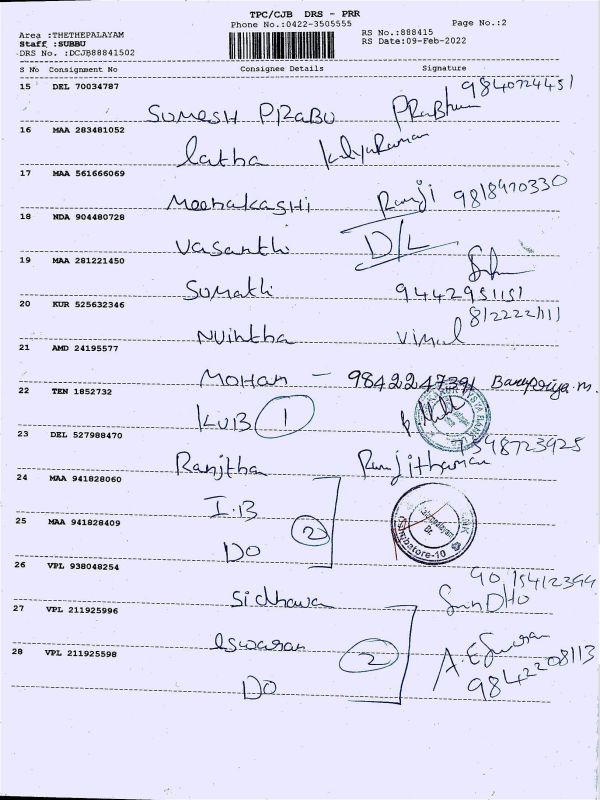 TPC/CJB DRS - PRR
Phone No.:0422-3505555
Page No.:2
Area :THETHEPALAYAM
RS No.:888415
Staff :SUBBU
RS Date:09-Feb-2022
DRS No. :DCJB88841502
S No Consignment No Consignee Details Signature
15 DEL 70034787
9840724451
SUMESH PRABU PRabhu
16 MAA 283481052
latha Kalyaraman
17 MAA 561666069
Meenakashi Ramji 9818470330
18 NDA 904480728
Vasanthi D/L
19 MAA 281221450
Sumathi 9442951151
20 KUR 525632346
8122221111
Nvintha Vimal
21 AMD 24195577
Mohan - 9842247391
22 TEN 1852732
KVB 1
23 DEL 527988470
7598723925
Ranjtha Ranjithaman
24 MAA 941828060
I.B
25 MAA 941828409
2
Do
Coimbatore-10
26 VPL 938048254
Sidhawa
27 VPL 211925996
Eswaran
2
28 VPL 211925598
9842208113
Do